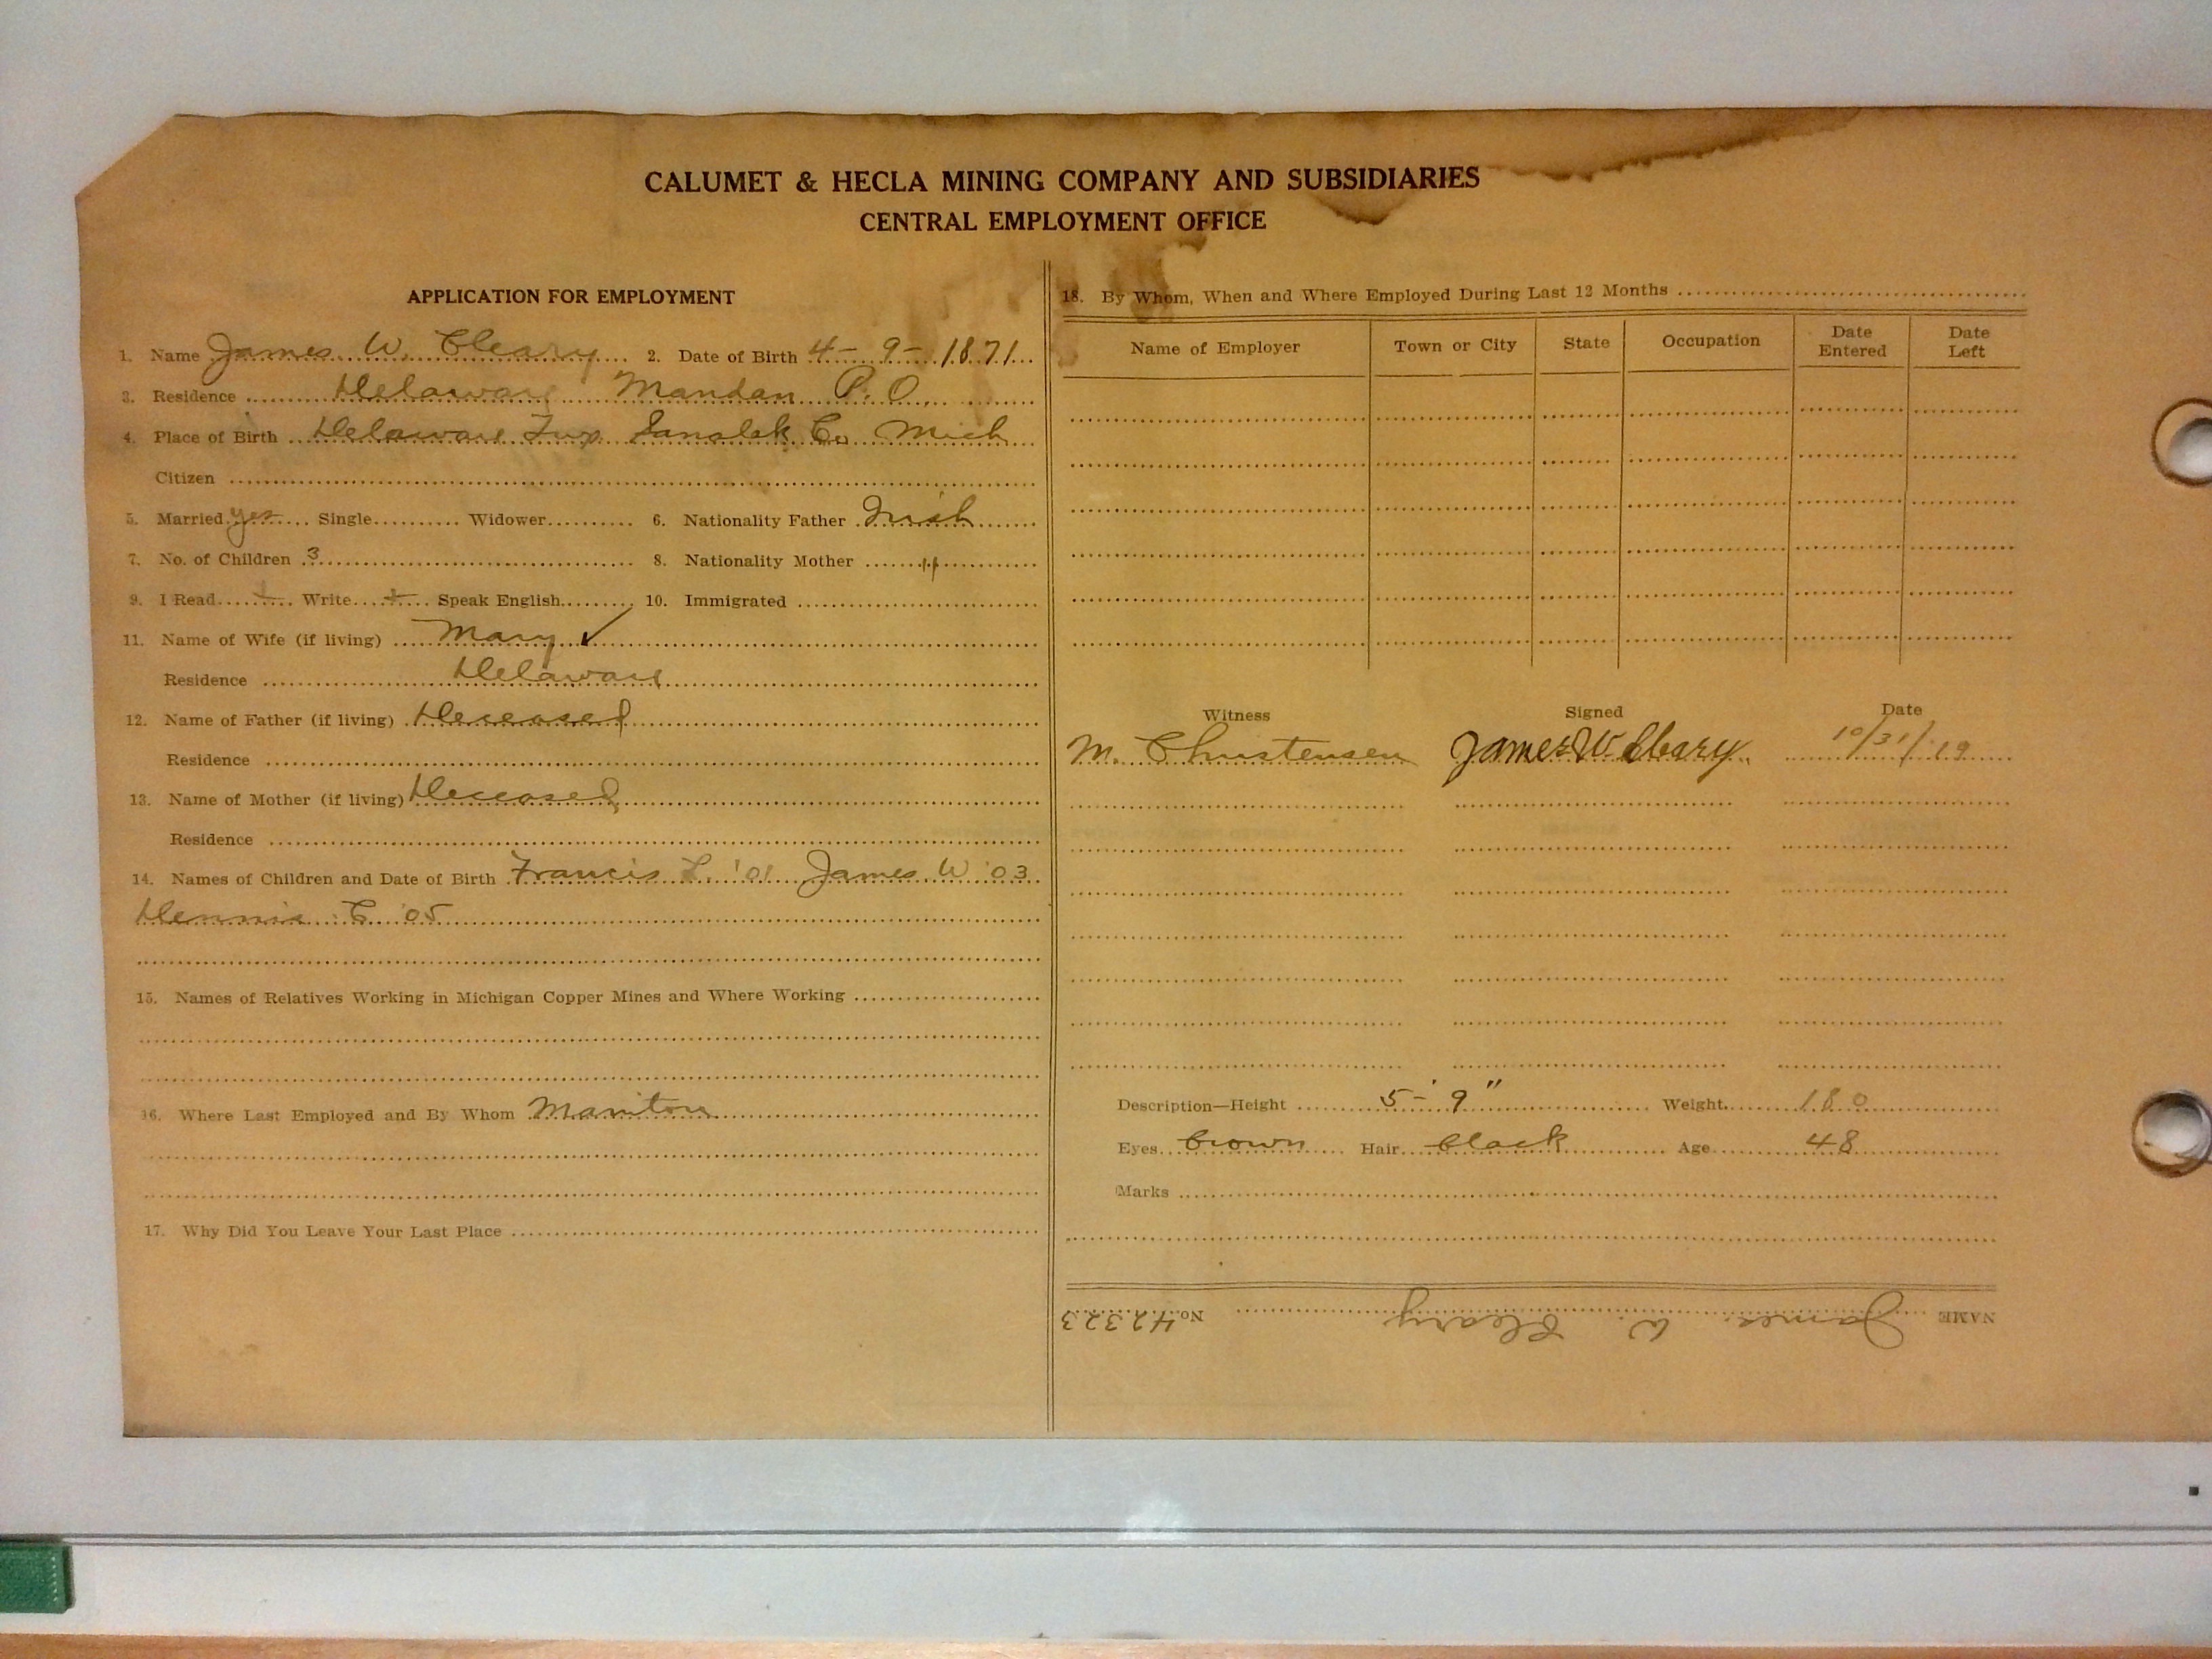 CALUMET & HECLA MINING COMPANY AND SUBSIDIARIES
CENTRAL EMPLOYMENT OFFICE
APPLICATION FOR EMPLOYMENT
1. Name James W. Cleary 2. Date of Birth 4-9-1871
3. Residence Delaware Mandan P.O.
4. Place of Birth Delaware Twp Sanalak Co Mich
Citizen
5. Married yes Single Widower 6. Nationality Father Irish
7. No. of Children 3 8. Nationality Mother "
9. I Read + Write + Speak English 10. Immigrated
11. Name of Wife (if living) Mary ✓
Residence Delaware
12. Name of Father (if living) Deceased
Residence
13. Name of Mother (if living) Deceased
Residence
14. Names of Children and Date of Birth Francis L. '01 James W '03
Dennis C '05
15. Names of Relatives Working in Michigan Copper Mines and Where Working
16. Where Last Employed and By Whom Manitou
17. Why Did You Leave Your Last Place
18. By Whom, When and Where Employed During Last 12 Months
Name of Employer Town or City State Occupation Date Entered Date Left
Witness Signed Date
M. Christensen James W. Cleary 10/31/19
Description—Height 5-'9" Weight 180
Eyes brown Hair black Age 48
Marks
NAME James W. Cleary No. 42323